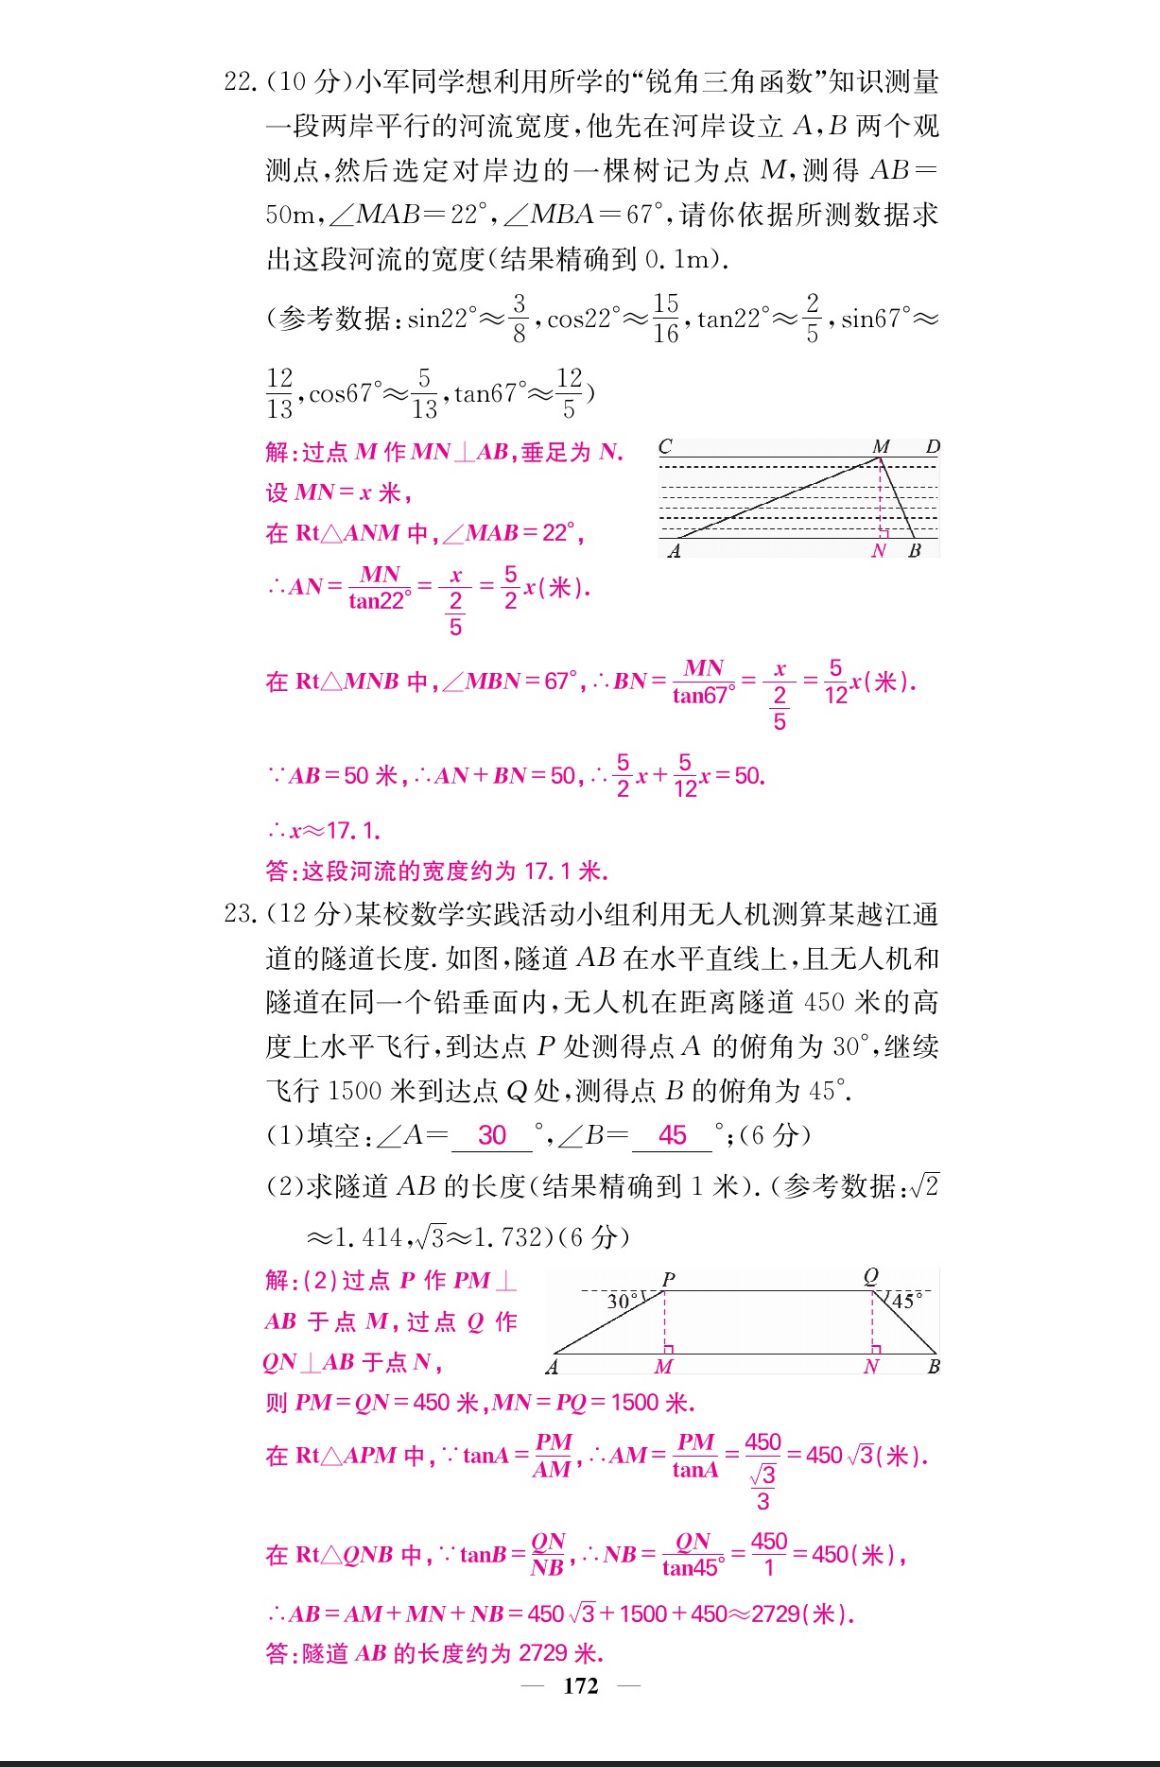 22.(10 分)小军同学想利用所学的“锐角三角函数”知识测量
一段两岸平行的河流宽度,他先在河岸设立 A,B 两个观
测点,然后选定对岸边的一棵树记为点 M,测得 AB=
50m,∠MAB=22°,∠MBA=67°,请你依据所测数据求
出这段河流的宽度(结果精确到 0.1m).
(参考数据:sin22°≈3/8,cos22°≈15/16,tan22°≈2/5,sin67°≈
12/13,cos67°≈5/13,tan67°≈12/5)
解:过点 M 作 MN⊥AB,垂足为 N.
设 MN=x 米,
在 Rt△ANM 中,∠MAB=22°,
∴AN=MN/tan22°=x/(2/5)=5/2x(米).
C M D
A N B
在 Rt△MNB 中,∠MBN=67°,∴BN=MN/tan67°=x/(2/5)=5/12x(米).
∵AB=50 米,∴AN+BN=50,∴5/2x+5/12x=50.
∴x≈17.1.
答:这段河流的宽度约为 17.1 米.
23.(12 分)某校数学实践活动小组利用无人机测算某越江通
道的隧道长度.如图,隧道 AB 在水平直线上,且无人机和
隧道在同一个铅垂面内,无人机在距离隧道 450 米的高
度上水平飞行,到达点 P 处测得点 A 的俯角为 30°,继续
飞行 1500 米到达点 Q 处,测得点 B 的俯角为 45°.
(1)填空:∠A= 30 °,∠B= 45 °;(6 分)
(2)求隧道 AB 的长度(结果精确到 1 米).(参考数据:√2
≈1.414,√3≈1.732)(6 分)
解:(2)过点 P 作 PM⊥
AB 于点 M,过点 Q 作
QN⊥AB 于点 N,
P Q
30° 45°
A M N B
则 PM=QN=450 米,MN=PQ=1500 米.
在 Rt△APM 中,∵tanA=PM/AM,∴AM=PM/tanA=450/(√3/3)=450√3(米).
在 Rt△QNB 中,∵tanB=QN/NB,∴NB=QN/tan45°=450/1=450(米),
∴AB=AM+MN+NB=450√3+1500+450≈2729(米).
答:隧道 AB 的长度约为 2729 米.
— 172 —